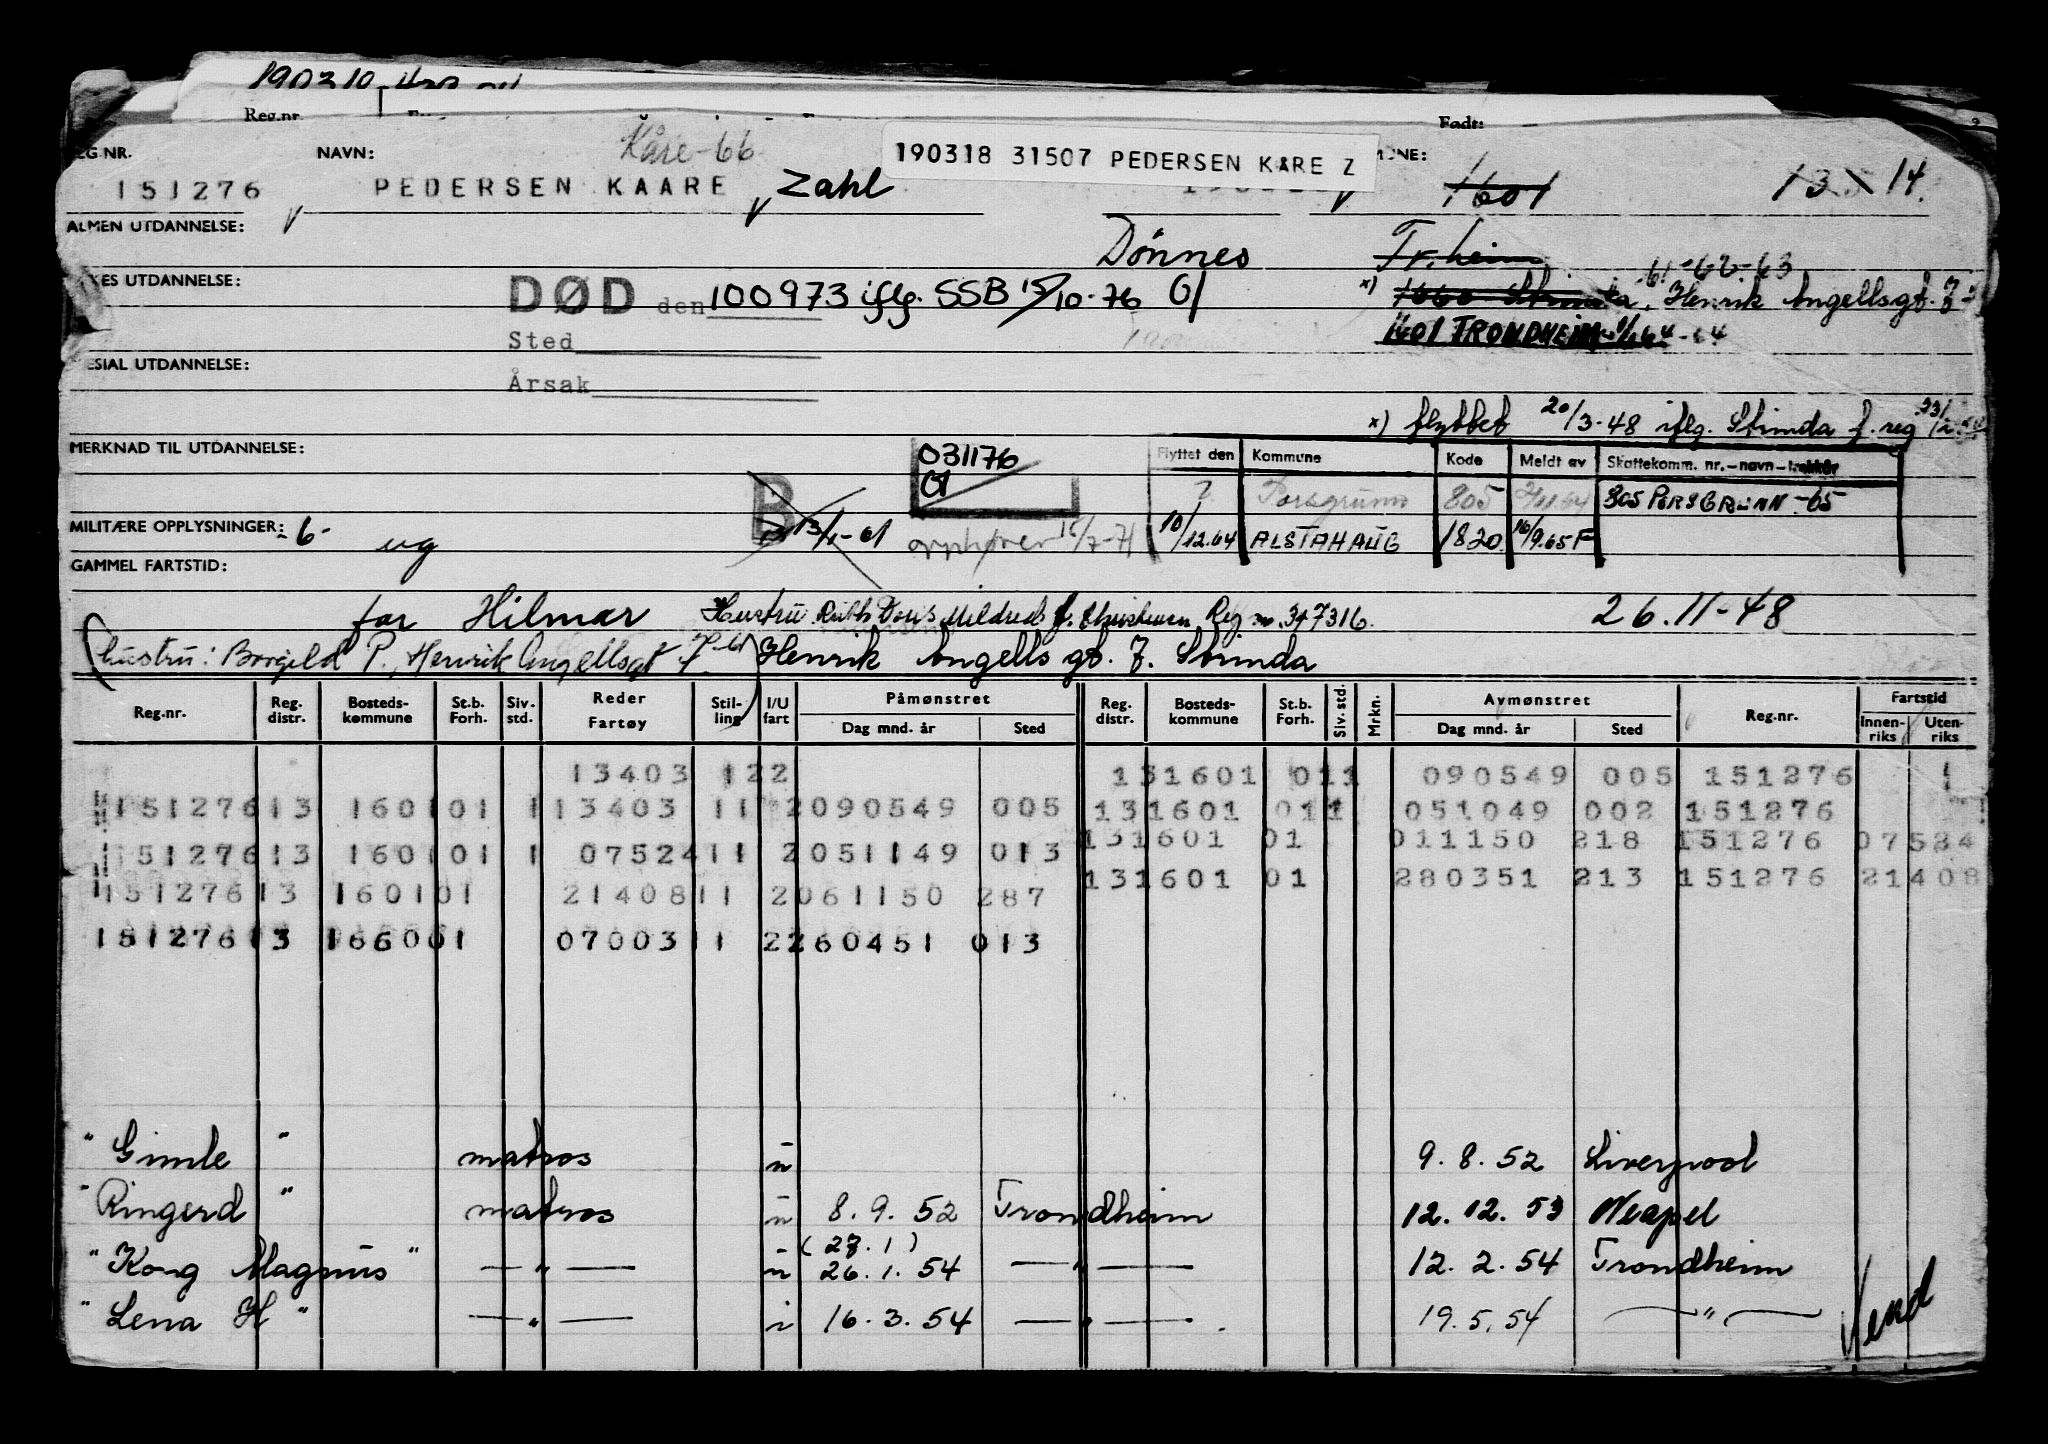 190310
Reg.nr. Født:
REG NR. NAVN: Kåre-66 190318 31507 PEDERSEN KÅRE Z
151276 PEDERSEN KAARE Zahl 1601 13 14.
ALMEN UTDANNELSE:
Dönnes Tr.heim
61-62-63
UTDANNELSE: DØD den 100973 iflg. SSB 15/10-76 Gl x) 1660 Strinda, Henrik Angellsgt. 7
Sted 1601 TRONDHEIM
UTDANNELSE: Årsak
x) flyttet 20/3-48 iflg. Strinda f. reg
MERKNAD TIL UTDANNELSE: 031176 Flyttet den Kommune Kode Meldt av Skattekomm. nr.-navn-
Gl
B ? Porsgrunn 805 805 PORSGRUNN-65
MILITÆRE OPPLYSNINGER: 6- ug 13/1-61 opphører 15/7-71 10/12.64 ALSTAHAUG 1820 16/9.65 F
GAMMEL FARTSTID:
far Hilmar Hustru Ruth Doris Mildred f. Reg nr. 347316. 26.11-48
hustru: Borgild P., Henrik Angellsgt 7 Henrik Angells gt. 7. Strinda
Reg.nr. Reg. distr. Bosteds- kommune St.b. Forh. Siv. std. Reder Fartøy Stil- ling I/U fart Påmønstret Dag mnd. år Sted Reg. distr. Bosteds- kommune St.b. Forh. Siv. std. Mrkn. Avmønstret Dag mnd. år Sted Reg.nr. Fartstid Innen- riks Uten- riks
13403 122 131601 011 090549 005 151276 1
151276 13 1601 01 1 13403 11 2 090549 005 131601 011 051049 002 151276
131601 01 011150 218 151276 07524
151276 13 1601 01 1 07524 11 2 051149 013
131601 01 280351 213 151276 21408
151276 13 1601 01 21408 11 2 061150 287
151276 13 1660 01 07003 11 2 260451 013
" Gimle " matros u 9.8.52 Liverpool
" Ringerd " matros u 8.9.52 Trondheim 12.12.53 Neapel
(27.1)
" Kong Magnus " —"— u 26.1.54 —"— 12.2.54 Trondheim
" Lena H " —"— i 16.3.54 —"— 19.5.54 —"—
Vend